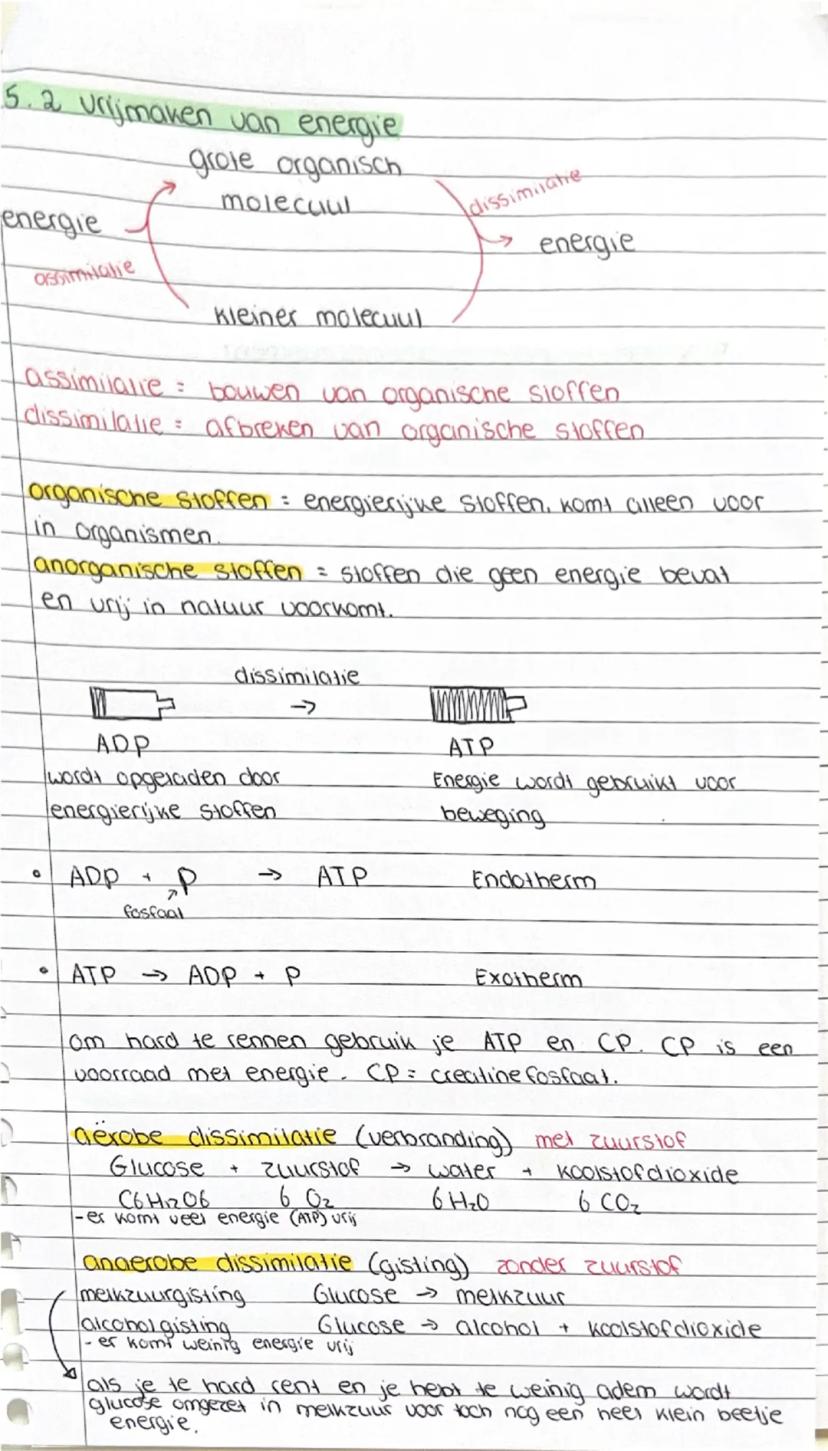 5.2 vrijmaken van energie
grote organisch
molecuul
dissimilatie
energie
energie
assimilatie
kleiner molecuul
assimilatie = bouwen van organische stoffen
dissimilatie = afbreken van organische stoffen
organische stoffen = energierijke stoffen, komt alleen voor
in organismen.
anorganische stoffen = stoffen die geen energie bevat
en vrij in natuur voorkomt.
dissimilatie
→
ADP ATP
wordt opgeladen door Energie wordt gebruikt voor
energierijke stoffen beweging
• ADP + P → ATP Endotherm
fosfaat
• ATP → ADP + P Exotherm
om hard te rennen gebruik je ATP en CP. CP is een
voorraad met energie. CP = creatinefosfaat.
aërobe dissimilatie (verbranding) met zuurstof
Glucose + zuurstof → water + koolstofdioxide
C6H12O6 6 O2 6 H2O 6 CO2
- er komt veel energie (ATP) vrij
anaerobe dissimilatie (gisting) zonder zuurstof
melkzuurgisting Glucose → melkzuur
alcoholgisting Glucose → alcohol + koolstofdioxide
- er komt weinig energie vrij
als je te hard rent en je hebt te weinig adem wordt
glucose omgezet in melkzuur voor toch nog een heel klein beetje
energie.